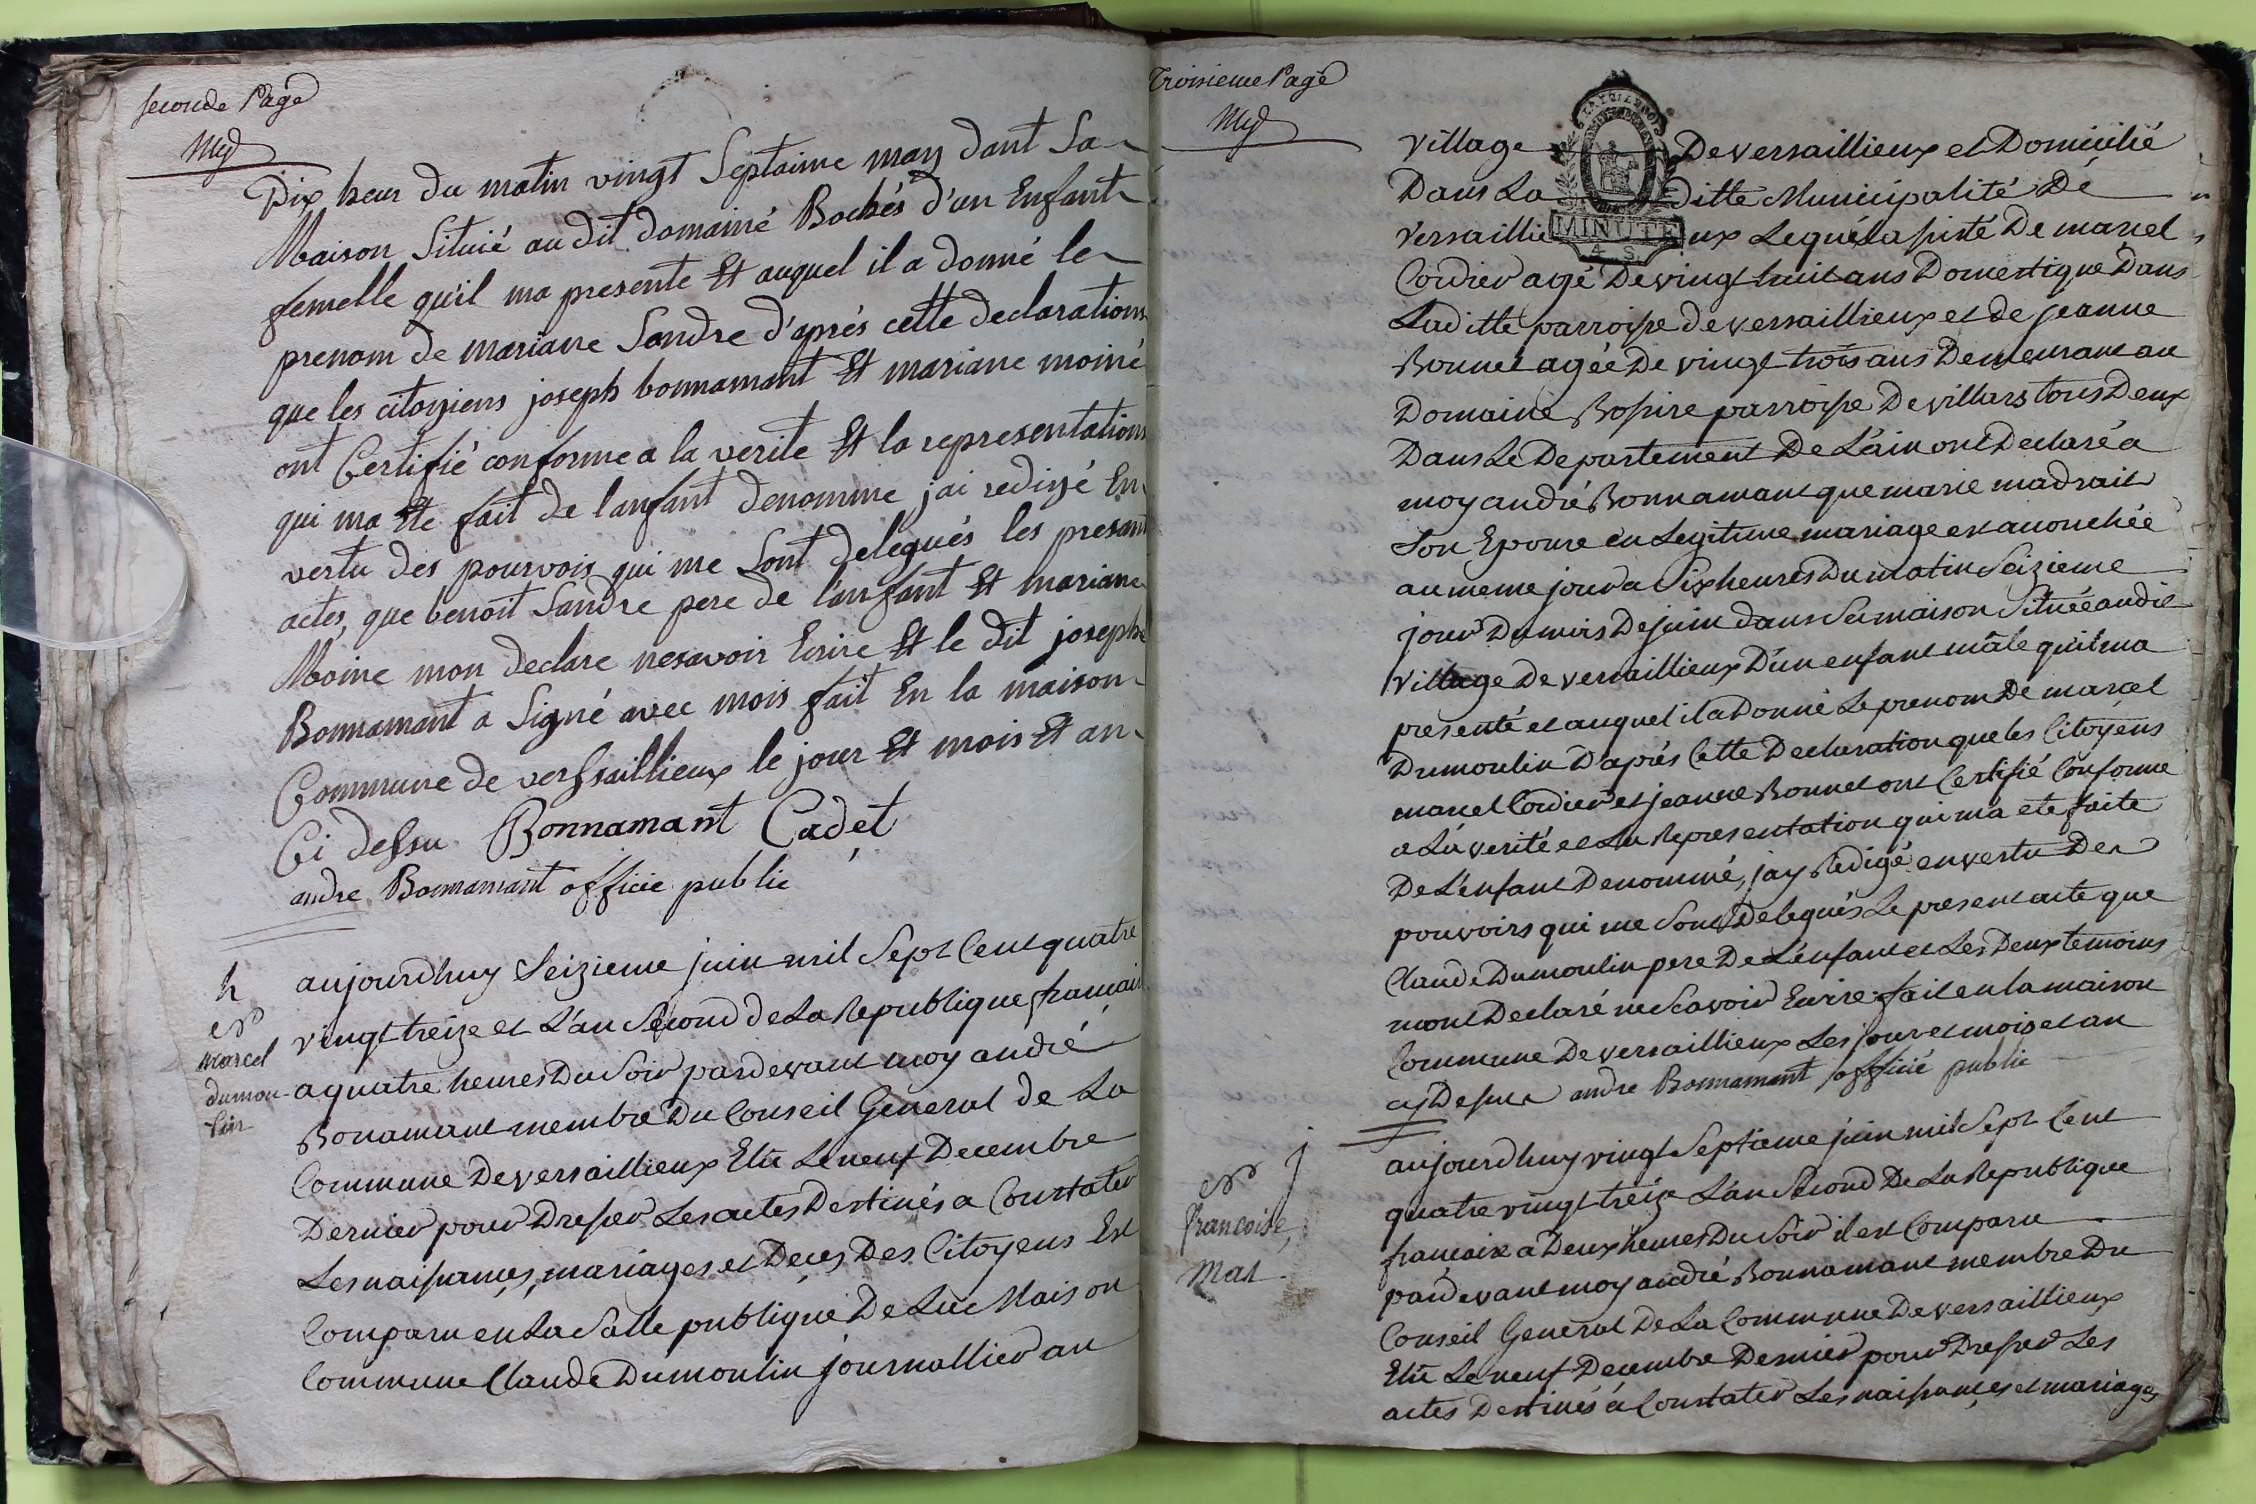 seconde Page
Dix heur du matin vingt Septaime may dant Sa
Maison Situié au dit domainé Bochés d'un Enfant
femelle qu'il ma presente Et auquel il a donné le
prenom de mariane Sandre d'aprés cette declarations
que les citoyiens joseph bonnamant Et mariane moiné
ont Certifié conforme a la verite Et la representations
qui ma Ete fait de lanfant denomme jai redigé En
vertu des pourvois qui me Sont delegués les presant
actes, que benoit Sandre pere de l'anfant Et mariane
Moine mon declare nesavoir Ecrire Et le dit joseph
Bonnamant a Signé avec mois fait En la maison
Commune de verssaillieux le jour Et mois Et an
Ci dessu Bonnamant Cadet
andre Bonnamant officié public
h
Marcel
dumou-
lin
aujourdhuy Seizieme juin mil Sept Cent quatre
vingt treize et L'an Second de La Republique français
a quatre heures Du Soir pardevant moy andré
Bonamant membre Du Conseil General de La
Commune De versaillieux Elu Le neuf Decembre
Dernier pour Dresser Les actes Destinés a Constater
Les naissances, mariages et Deces Des Citoyens Est
Comparu en La Salle publique De La Maison
Commune Claude Dumoulin journallier au
Troisieme Page
MINUTE
4 S.
village De versaillieux et Domicilié
Dans La Ditte Municipalité De
versaillieux Lequel assisté De marcel
Cordier agé De vingt huit ans Domestique Dans
Laditte parroisse de versaillieux et de jeanne
Bonnet agée De vingt trois ans Demeurant au
Domaine parroisse De villars tous Deux
Dans Le Departement De L'ain ont Declaré a
moy andré Bonnamant que marie madrait
Son Epouse en Legitime mariage est accouchée
au meme jour a Six heures Du matin Seizieme
jour Du mois De juin dans Sa maison Située audit
village De versaillieux D'un enfant mâle quil ma
presenté et auquel il a Donné Le prenom De marcel
Dumoulin D'aprés Cette Declaration que les Citoyens
marcel Cordier et jeanne Bonnet ont Certifié Conforme
a La verité et La Representation qui ma eté faite
De L'enfant Denommé, jay Redigé en vertu Des
pouvoirs qui me Sont Delegués Le present acte que
Claude Dumoulin pere De L'enfant et Les Deux temoins
mont Declaré ne Scavoir Ecrire fait en la maison
Commune De versaillieux Les jour et mois et an
cy Dessus andre Bonnamant officié public
j
francoise,
Mas
aujourdhuy vingt Septieme juin mil Sept Cent
quatre vingt treize L'an Second De La Republique
françaix a Deux heures Du Soir il est Comparu
pardevant moy andré Bonnamant membre Du
Conseil General De La Commune De versaillieux
Elu Le neuf Decembre Dernier pour Dresser Les
actes Destinés a Constater Les naissances et mariages